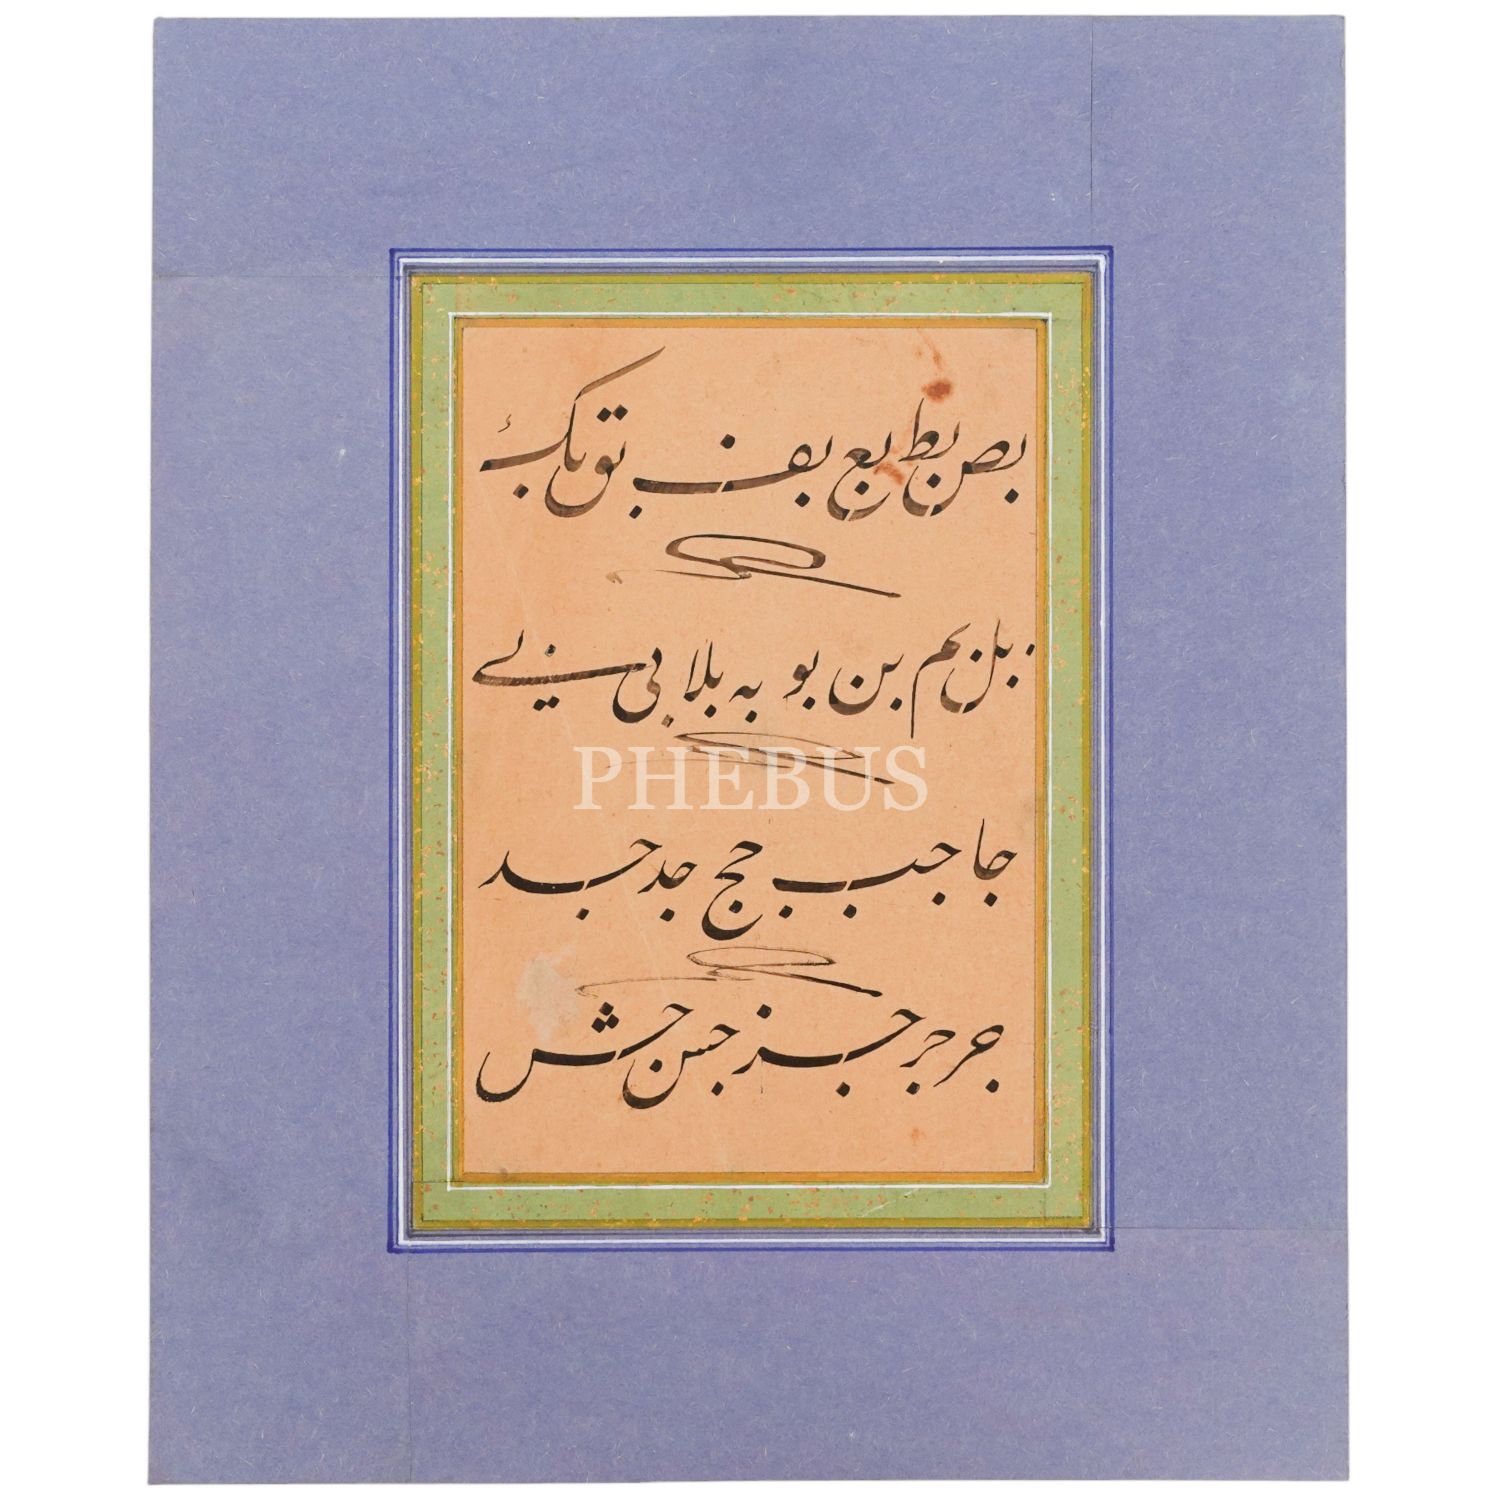 بص بط بع بف ڡ بق بک
بل بم بن بو به بلا بی
PHEBUS
جا جب حج جد جد
جر جر جز جس جش